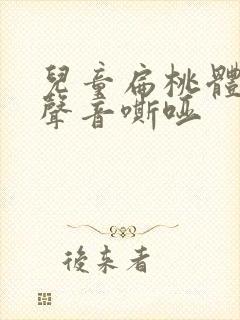 兒童扁桃體
聲音嘶啞
後来者